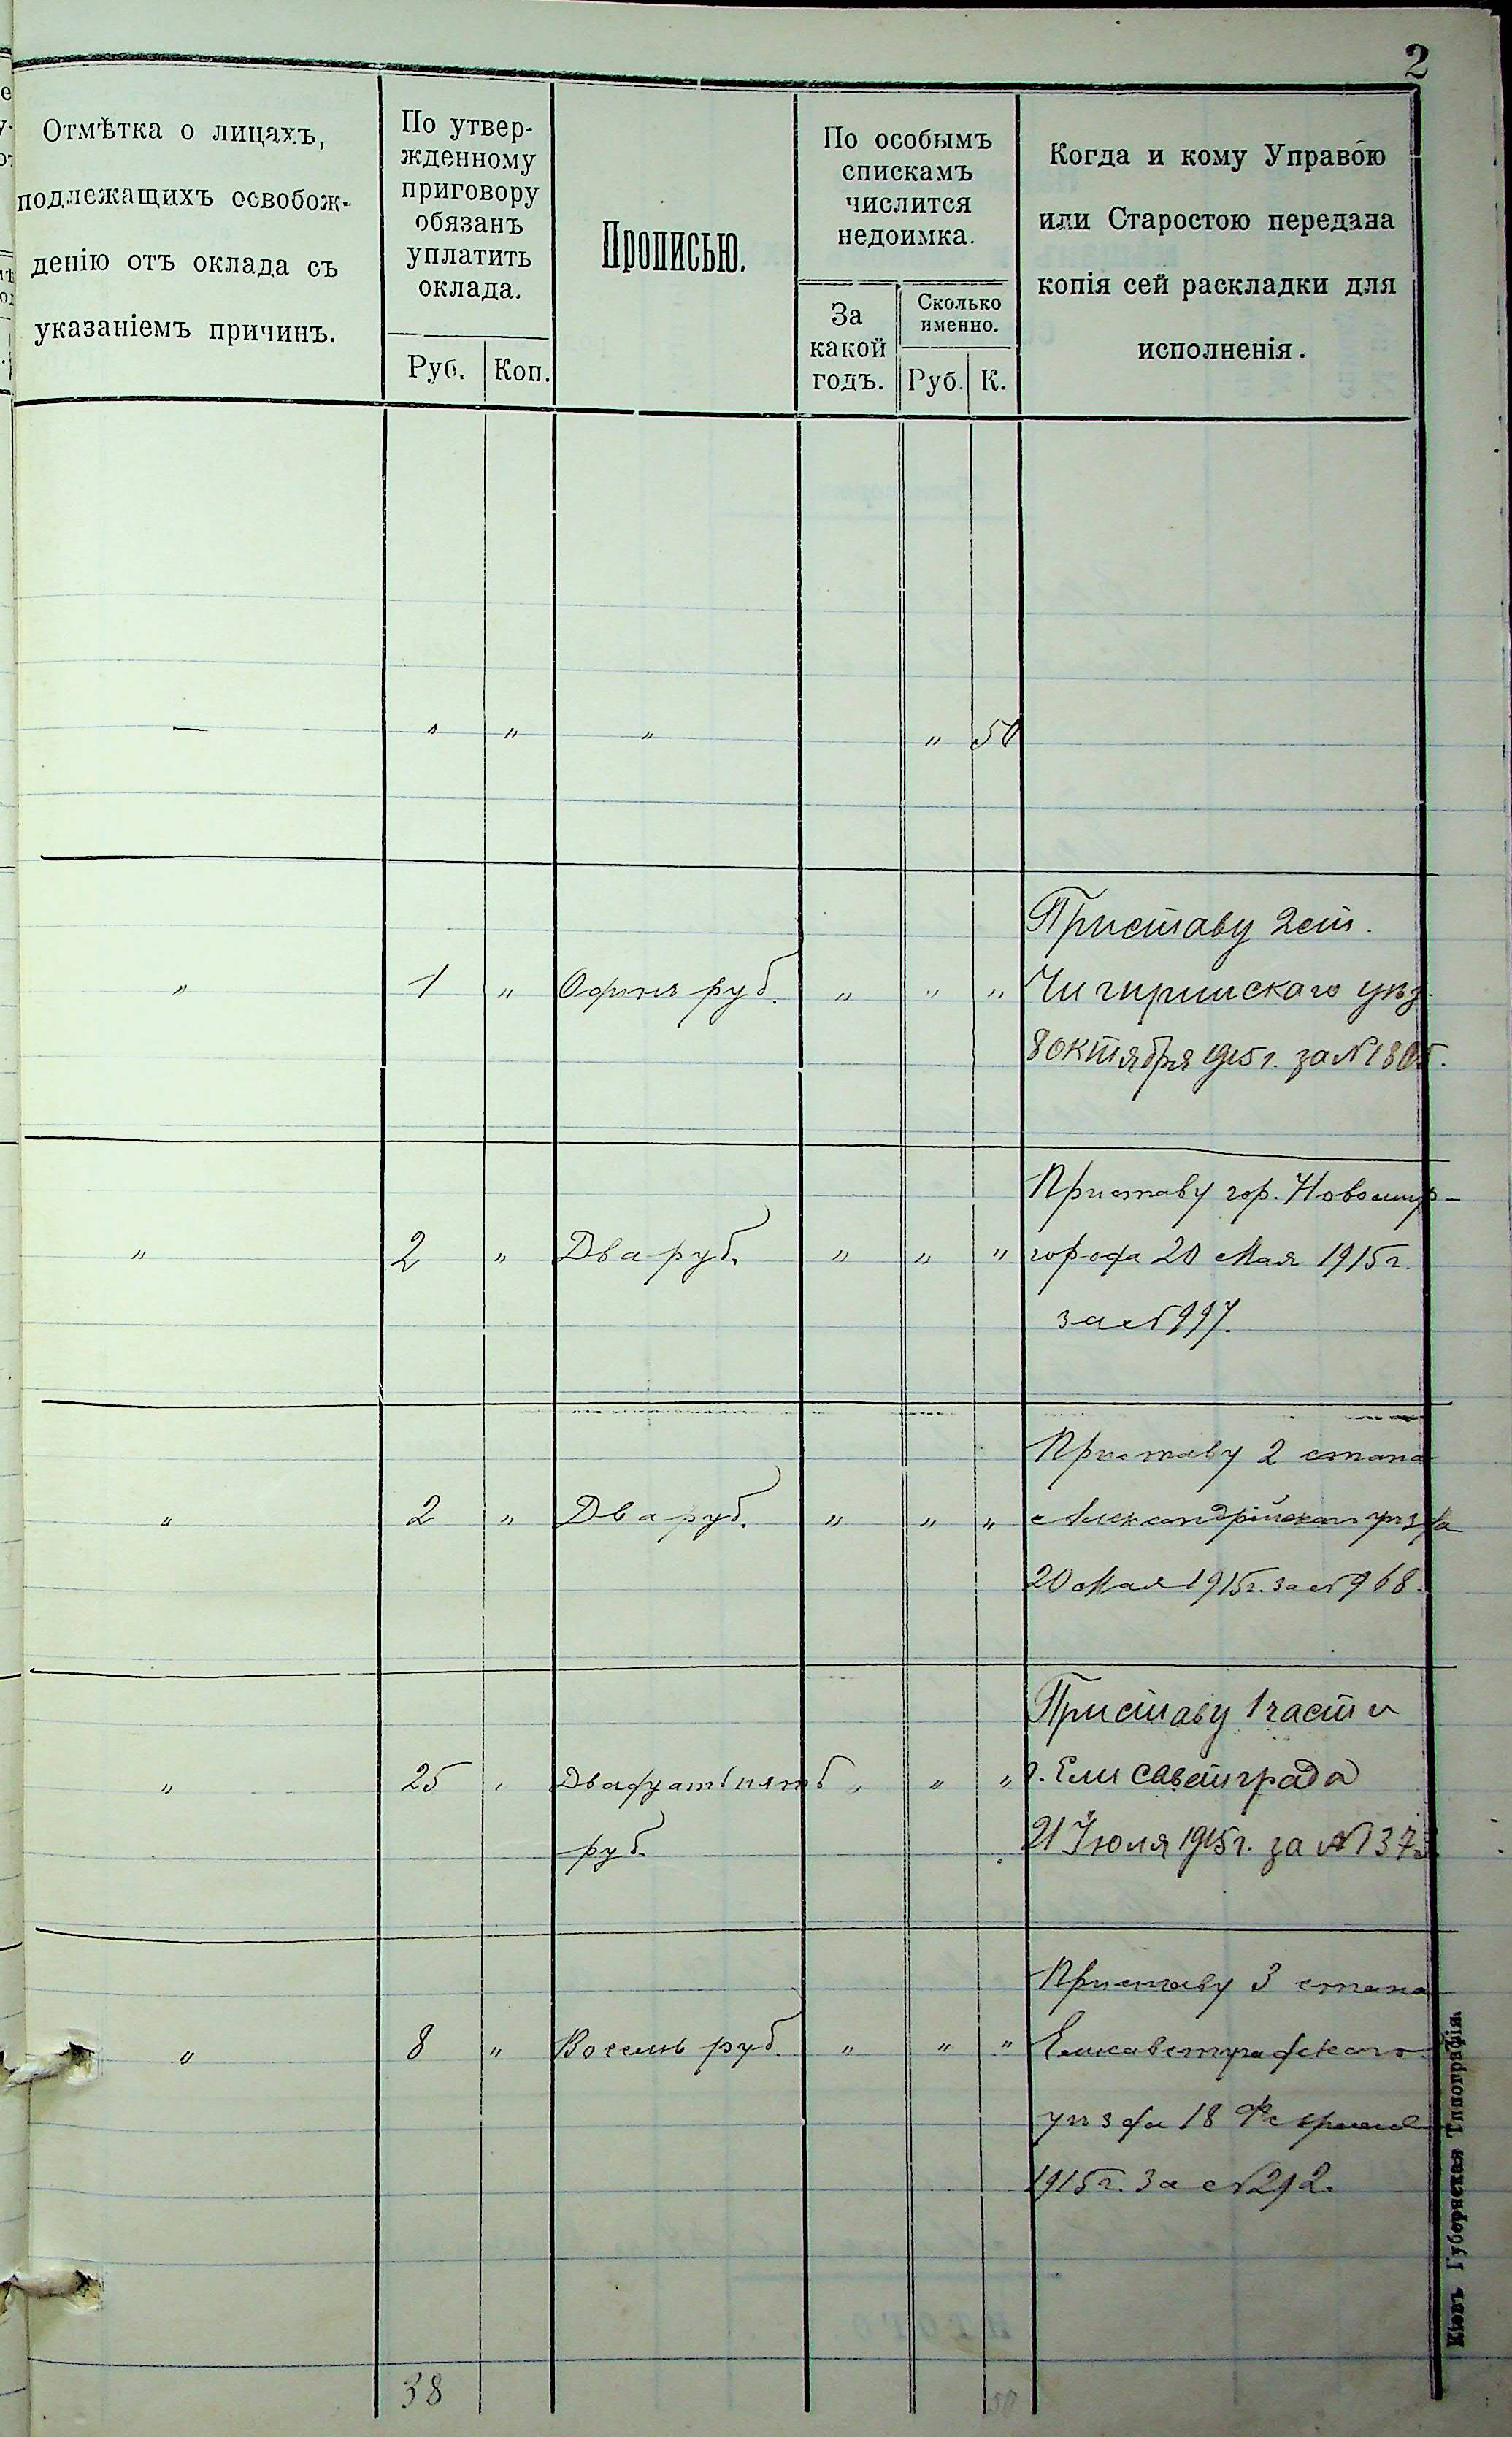 2
Отмѣтка о лицахъ,
подлежащихъ освобож-
денію отъ оклада съ
указаніемъ причинъ.
По утвер-
жденному
приговору
обязанъ
уплатить
оклада.
Руб. Коп.
Прописью.
По особымъ
спискамъ
числится
недоимка.
За
какой
годъ.
Сколько
именно.
Руб. К.
Когда и кому Управою
или Старостою передана
копія сей раскладки для
исполненія.
— " " " " 50
Приставу 2 ст.
" 1 " Одинъ руб. " " " Чигиринскаго уѣз.
8 октября 1915 г. за № 1805.
Приставу гор. Новомир-
" 2 " Два руб. " " " города 20 Мая 1915 г.
за № 997.
Приставу 2 стана
" 2 " Два руб. " " " Александрійскаго уѣзда
20 Мая 1915 г. за № 968.
Приставу 1 части
" 25 " Двадцать пять " " " г. Елисаветграда
руб. 21 Іюля 1915 г. за №
Приставу 3 стана
" 8 " Восемь руб. " " " Елисаветградскаго
уѣзда 18 Февраля
1915 г. за № 292.
38
Кіевъ Губернская Типографія.